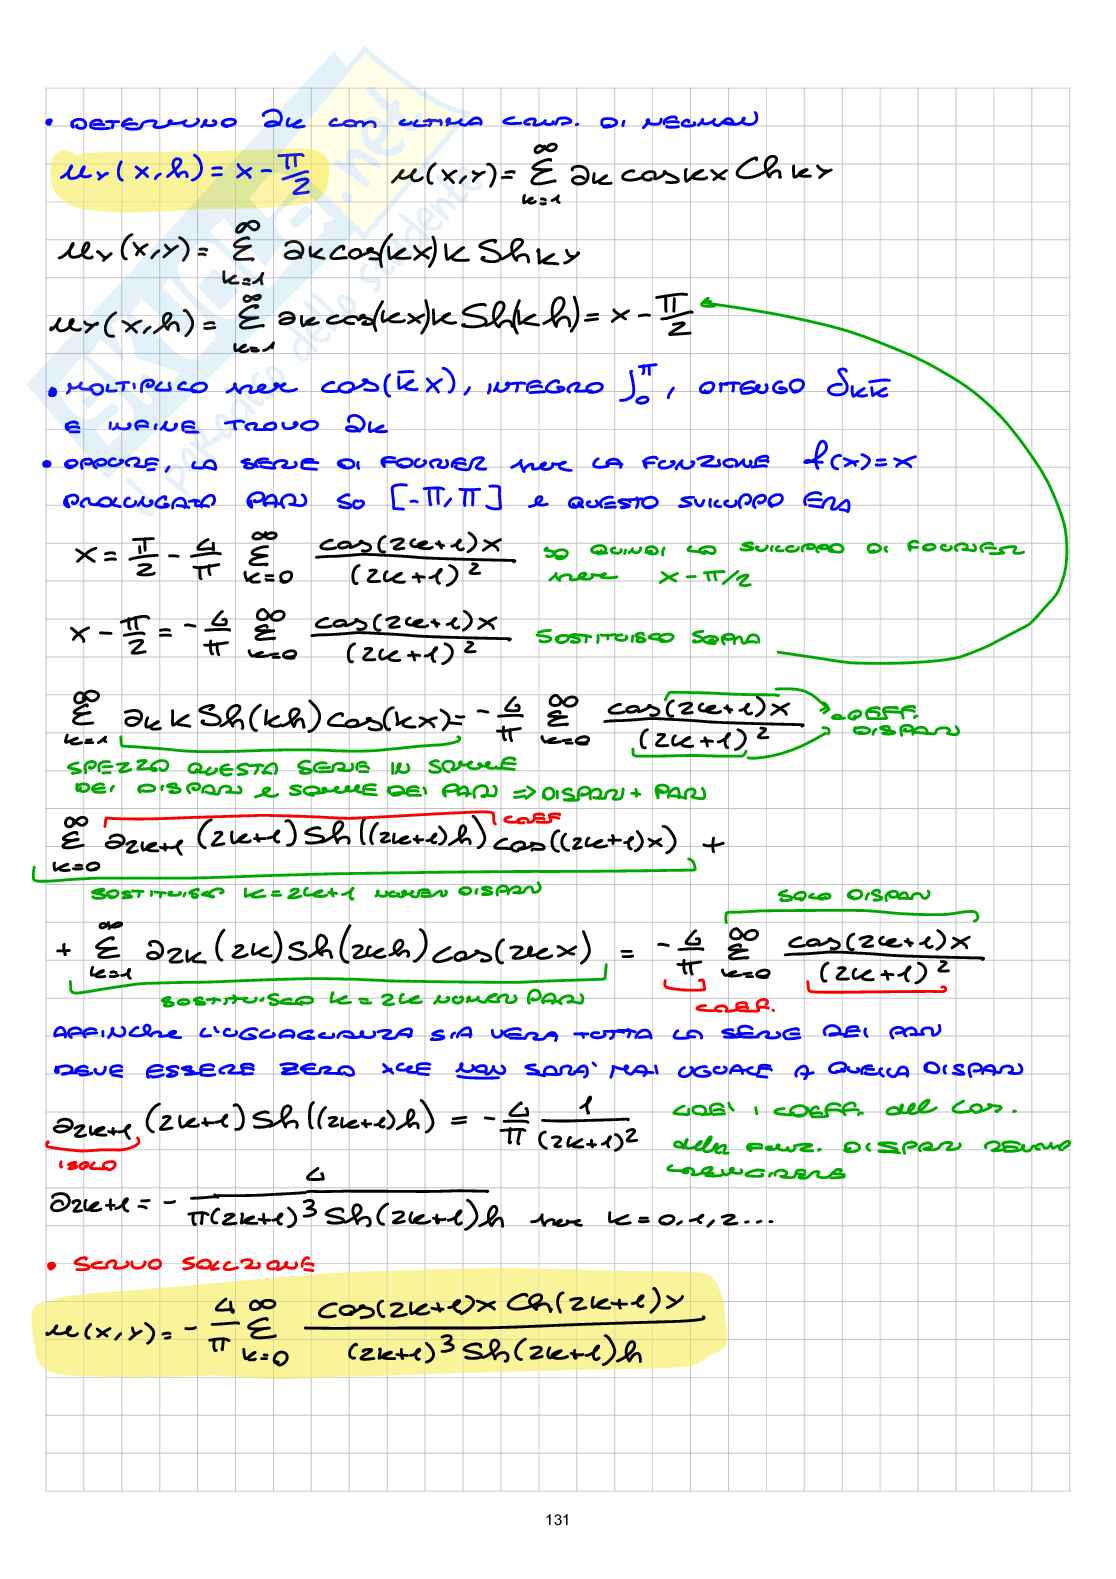 • DETERMINO ak con ULTIMA COND. DI NEUMAN
u_y(x,h) = x - π/2   u(x,y) = Σ_{k=1}^{∞} a_k cos kx Ch ky
u_y(x,y) = Σ_{k=1}^{∞} a_k cos(kx) k Sh ky
u_y(x,h) = Σ_{k=1}^{∞} a_k cos(kx) k Sh(kh) = x - π/2
• MOLTIPLICO per cos(k̄x), INTEGRO ∫_0^π, OTTENGO δ_{kk̄}
E INFINE TROVO a_k
• OPPURE, LA SERIE DI FOURIER per LA FUNZIONE f(x) = x
PROLUNGATA PARI SU [-π, π] e QUESTO SVILUPPO ERA
x = π/2 - 4/π Σ_{k=0}^{∞} cos(2k+1)x / (2k+1)^2   SO QUINDI LO SVILUPPO DI FOURIER
per x - π/2
x - π/2 = - 4/π Σ_{k=0}^{∞} cos(2k+1)x / (2k+1)^2   SOSTITUISCO SOPRA
Σ_{k=1}^{∞} a_k k Sh(kh) cos(kx) = - 4/π Σ_{k=0}^{∞} cos(2k+1)x / (2k+1)^2   COEFF.
DISPARI
SPEZZO QUESTA SERIE IN SOMME
DEI DISPARI e SOMME DEI PARI => DISPARI + PARI
COEF
Σ_{k=0}^{∞} a_{2k+1} (2k+1) Sh((2k+1)h) cos((2k+1)x) +
SOSTITUISCO k = 2k+1 NUMERI DISPARI
SOLO DISPARI
+ Σ_{k=1}^{∞} a_{2k} (2k) Sh(2kh) cos(2kx) = - 4/π Σ_{k=0}^{∞} cos(2k+1)x / (2k+1)^2
SOSTITUISCO k = 2k NUMERI PARI
COEF.
AFFINCHE L'UGUAGLIANZA SIA VERA TUTTA LA SERIE DEI PARI
DEVE ESSERE ZERO XCE NON SARA' MAI UGUALE A QUELLA DISPARI
a_{2k+1} (2k+1) Sh((2k+1)h) = - 4/π 1/(2k+1)^2   COSÌ I COEFF. del cos.
della FUNZ. DISPARI
ISOLO
a_{2k+1} = - 4 / π(2k+1)^3 Sh(2k+1)h per k = 0, 1, 2 ...
• SCRIVO SOLUZIONE
u(x,y) = - 4/π Σ_{k=0}^{∞} cos(2k+1)x Ch(2k+1)y / (2k+1)^3 Sh(2k+1)h
131